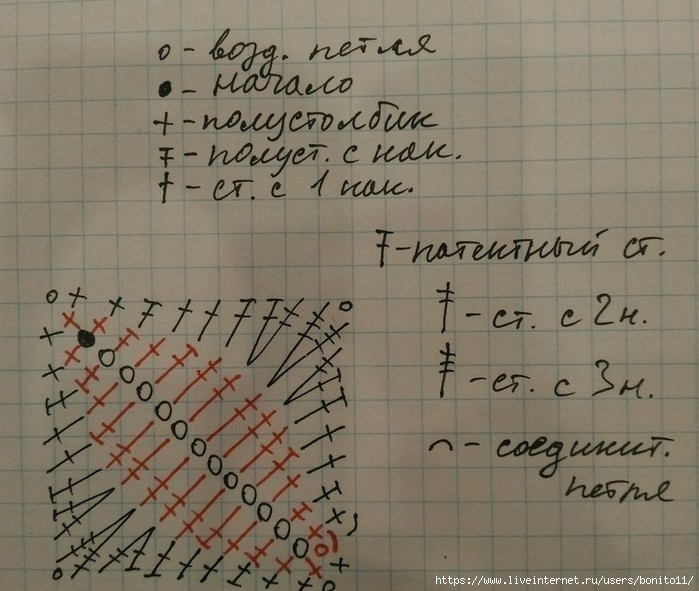 o - возд. петля
● - начало
+ - полустолбик
- полуст. с нак.
† - ст. с 1 нак.
- патентный ст.
- ст. с 2 н.
- ст. с 3 н.
⌒ - соединит.
петля
https://www.liveinternet.ru/users/bonito11/